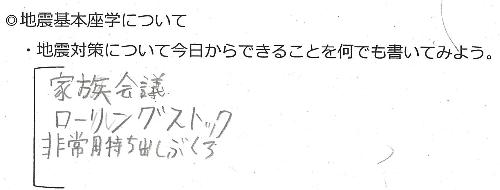 ◎地震基本座学について
・地震対策について今日からできることを何でも書いてみよう。
家族会議
ローリングストック
非常用持ち出しぶくろ